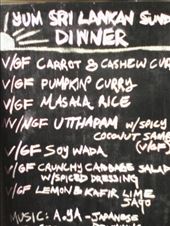 YUM SRI LANKAN SUND
DINNER
V/GF CARROT & CASHEW CUR
V/GF PUMPKIN CURRY
V/GF MASALA RICE
V/NGF UTTHAPAM W/SPICY
COCONUT SAMB
(V/GF)
V/GF SOY WADA
V/GF CRUNCHY CABBAGE SALAD
W/SPICED DRESSING
V/GF LEMON & KAFIR LIME
SAGO
MUSIC: AYA - JAPANESE